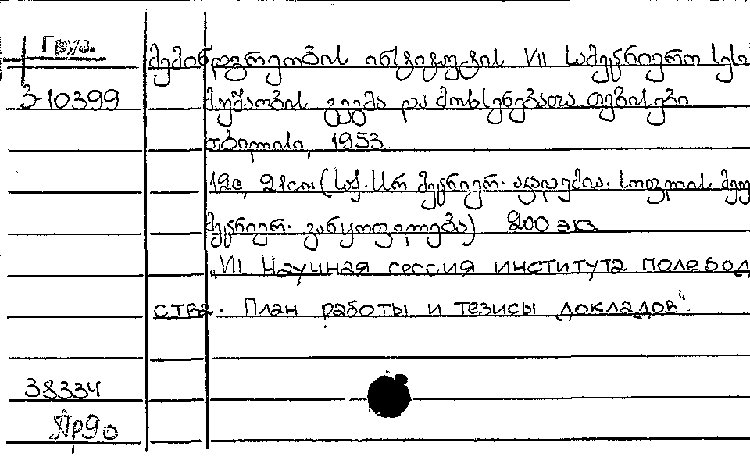 Груз.
მემინდვრეობის ინსტიტუტის VII სამეცნიერო სესი
3-10399
მუშაობის გეგმა და მოხსენებათა თეზისები
თბილისი, 1953
12с, 21см (საქ. სსრ მეცნიერ. აკადემია. სოფლის მეუ
მეცნიერ. განყოფილება) 200 экз
„VII Научная сессия института полевод
ства. План работы и тезисы докладов“.
38334